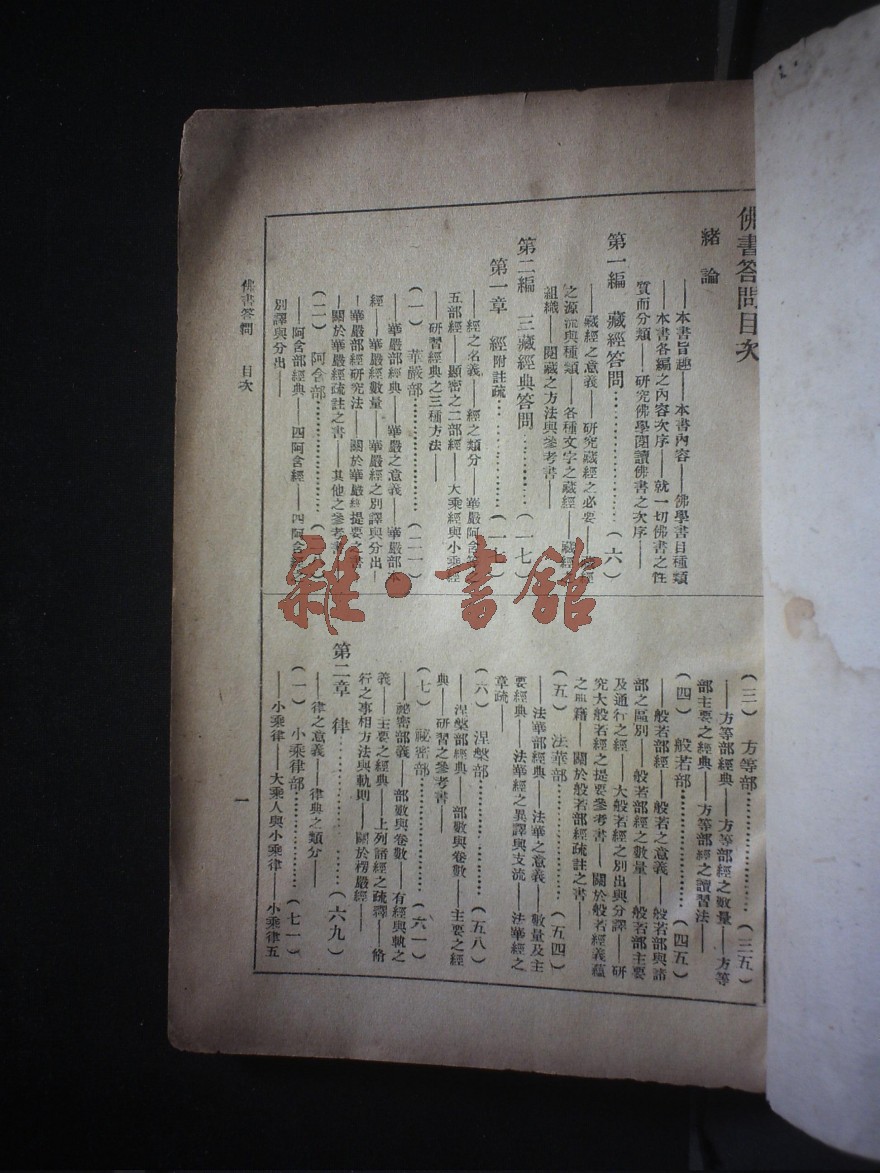 佛書答問目次
緒論
——本書旨趣——本書內容——佛學書目種類
——本書各編之內容次序——就一切佛書之性
質而分類——研究佛學閱讀佛書之次序——
第一編 藏經答問…………………(六)
——藏經之意義——研究藏經之必要——藏經
之源流與種類——各種文字之藏經——藏經
組織——閱藏之方法與參考書——
第二編 三藏經典答問…………(一七)
第一章 經附註疏…………………(一七)
——經之名義——經之類分——華嚴阿含等
五部經——顯密之二部經——大乘經與小乘經
——研習經典之三種方法——
(一) 華嚴部…………………(二一)
——華嚴部經典——華嚴之意義——華嚴部本
經——華嚴經數量——華嚴經之別譯與分出—
—華嚴部經研究法——關於華嚴經提要之書
—關於華嚴經疏註之書——其他之參考書
(二) 阿含部…………………
——阿含部經典——四阿含經——四阿含經
別譯與分出——
(三) 方等部…………………(三五)
——方等部經典——方等部經之數量——方等
部主要之經典——方等部經之讀習法——
(四) 般若部…………………(四五)
——般若部經——般若之意義——般若部與諸
部之區別——般若部經之數量——般若部主要
及通行之經——大般若經之別出與分譯——研
究大般若經之提要參考書——關於般若經義蘊
之典籍——關於般若部經疏註之書——
(五) 法華部…………………(五四)
——法華部經典——法華之意義——數量及主
要經典——法華經之異譯與支流——法華經之
章疏——
(六) 涅槃部…………………(五八)
——涅槃部經典——部數與卷數——主要之經
典——研習之參考書——
(七) 祕密部…………………(六一)
——祕密部義——部數與卷數——有經與軌之
義——主要之經典——上列諸經之疏釋——脩
行之事相方法與軌則——關於楞嚴經——
第二章 律…………………(六九)
——律之意義——律典之類分——
(一) 小乘律部…………………(七一)
——小乘律——大乘人與小乘律——小乘律五
佛書答問 目次
一
雜·書館